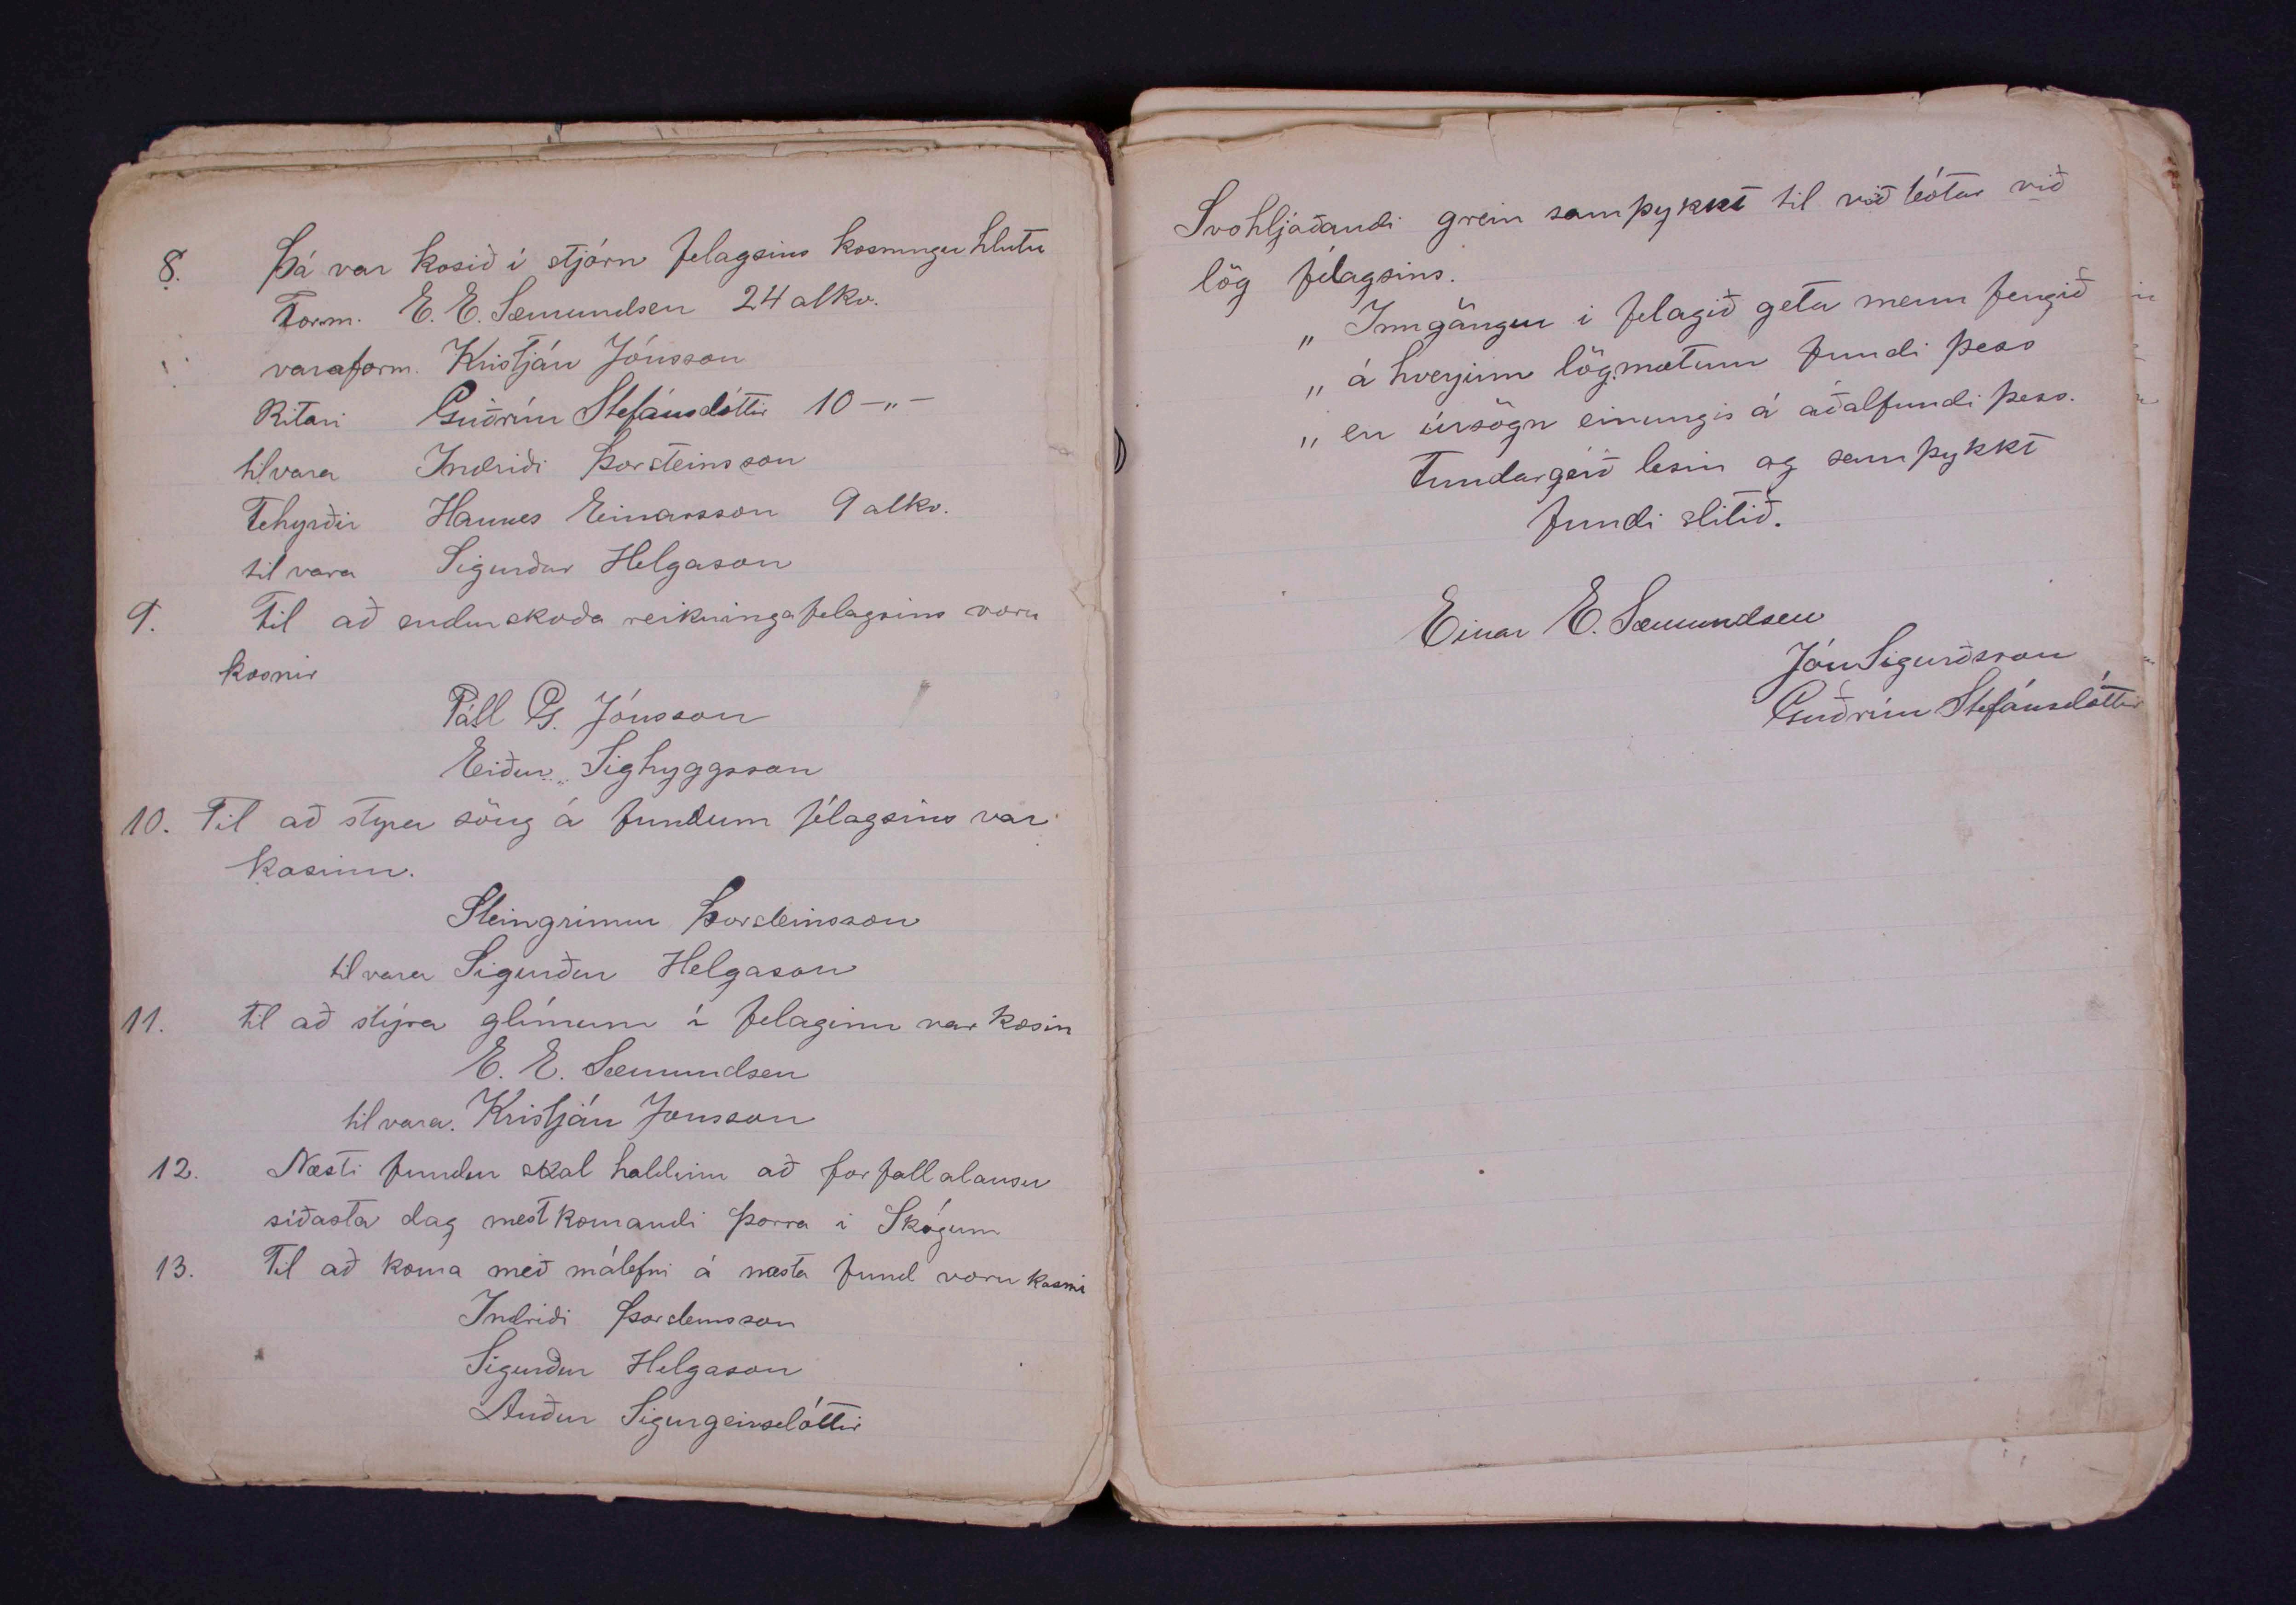 8. Þá var kosið í stjórn felagsins kosningu hlutu
Form. E. E. Sæmundsen 24 atkv.
varaform. Kristján Jónsson
Ritari Guðrún Stefánsdóttir 10 —„—
til vara Indriði Þorsteinsson
Fehyrðir Hannes Einarsson 9 atkv.
til vara Sigurður Helgason
9. Til að endurskoða reikninga felagsins voru
kosnir
Páll G. Jónsson
Eiður Sigtryggsson
10. Til að styra söng á fundum félagsins var
kosinn.
Steingrimur Þorsteinsson
til vara Sigurður Helgason
11. Til að stýra glímum í felaginu var kosin
E. E. Sæmundsen
til vara. Kristján Jonsson
12. Næsti fundur skal haldinn að forfallalausu
síðasta dag næstkomandi Þorra i Skógum
13. Til að koma með málefni á næsta fund voru kosnir
Indriði Þorsteinsson
Sigurður Helgason
Auður Sigurgeirsdóttir
Svohljóðandi grein samþykkt til viðbótar við
lög félagsins.
„ Inngöngu i felagið geta menn fengið
„ á hverjum lögmætum fundi þess
„ en úrsögn einungis á aðalfundi þess.
Fundargerð lesin og samþykkt
fundi slitið.
Einar E. Sæmundsen
Jón Sigurðsson
Guðrún Stefánsdóttir